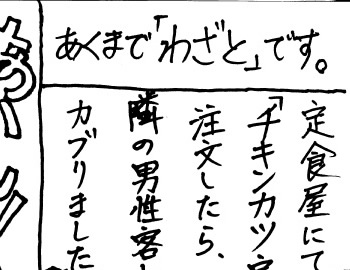 あくまで「わざと」です。
定食屋にて
「チキンカツ定
注文したら、
隣の男性客
カブりました